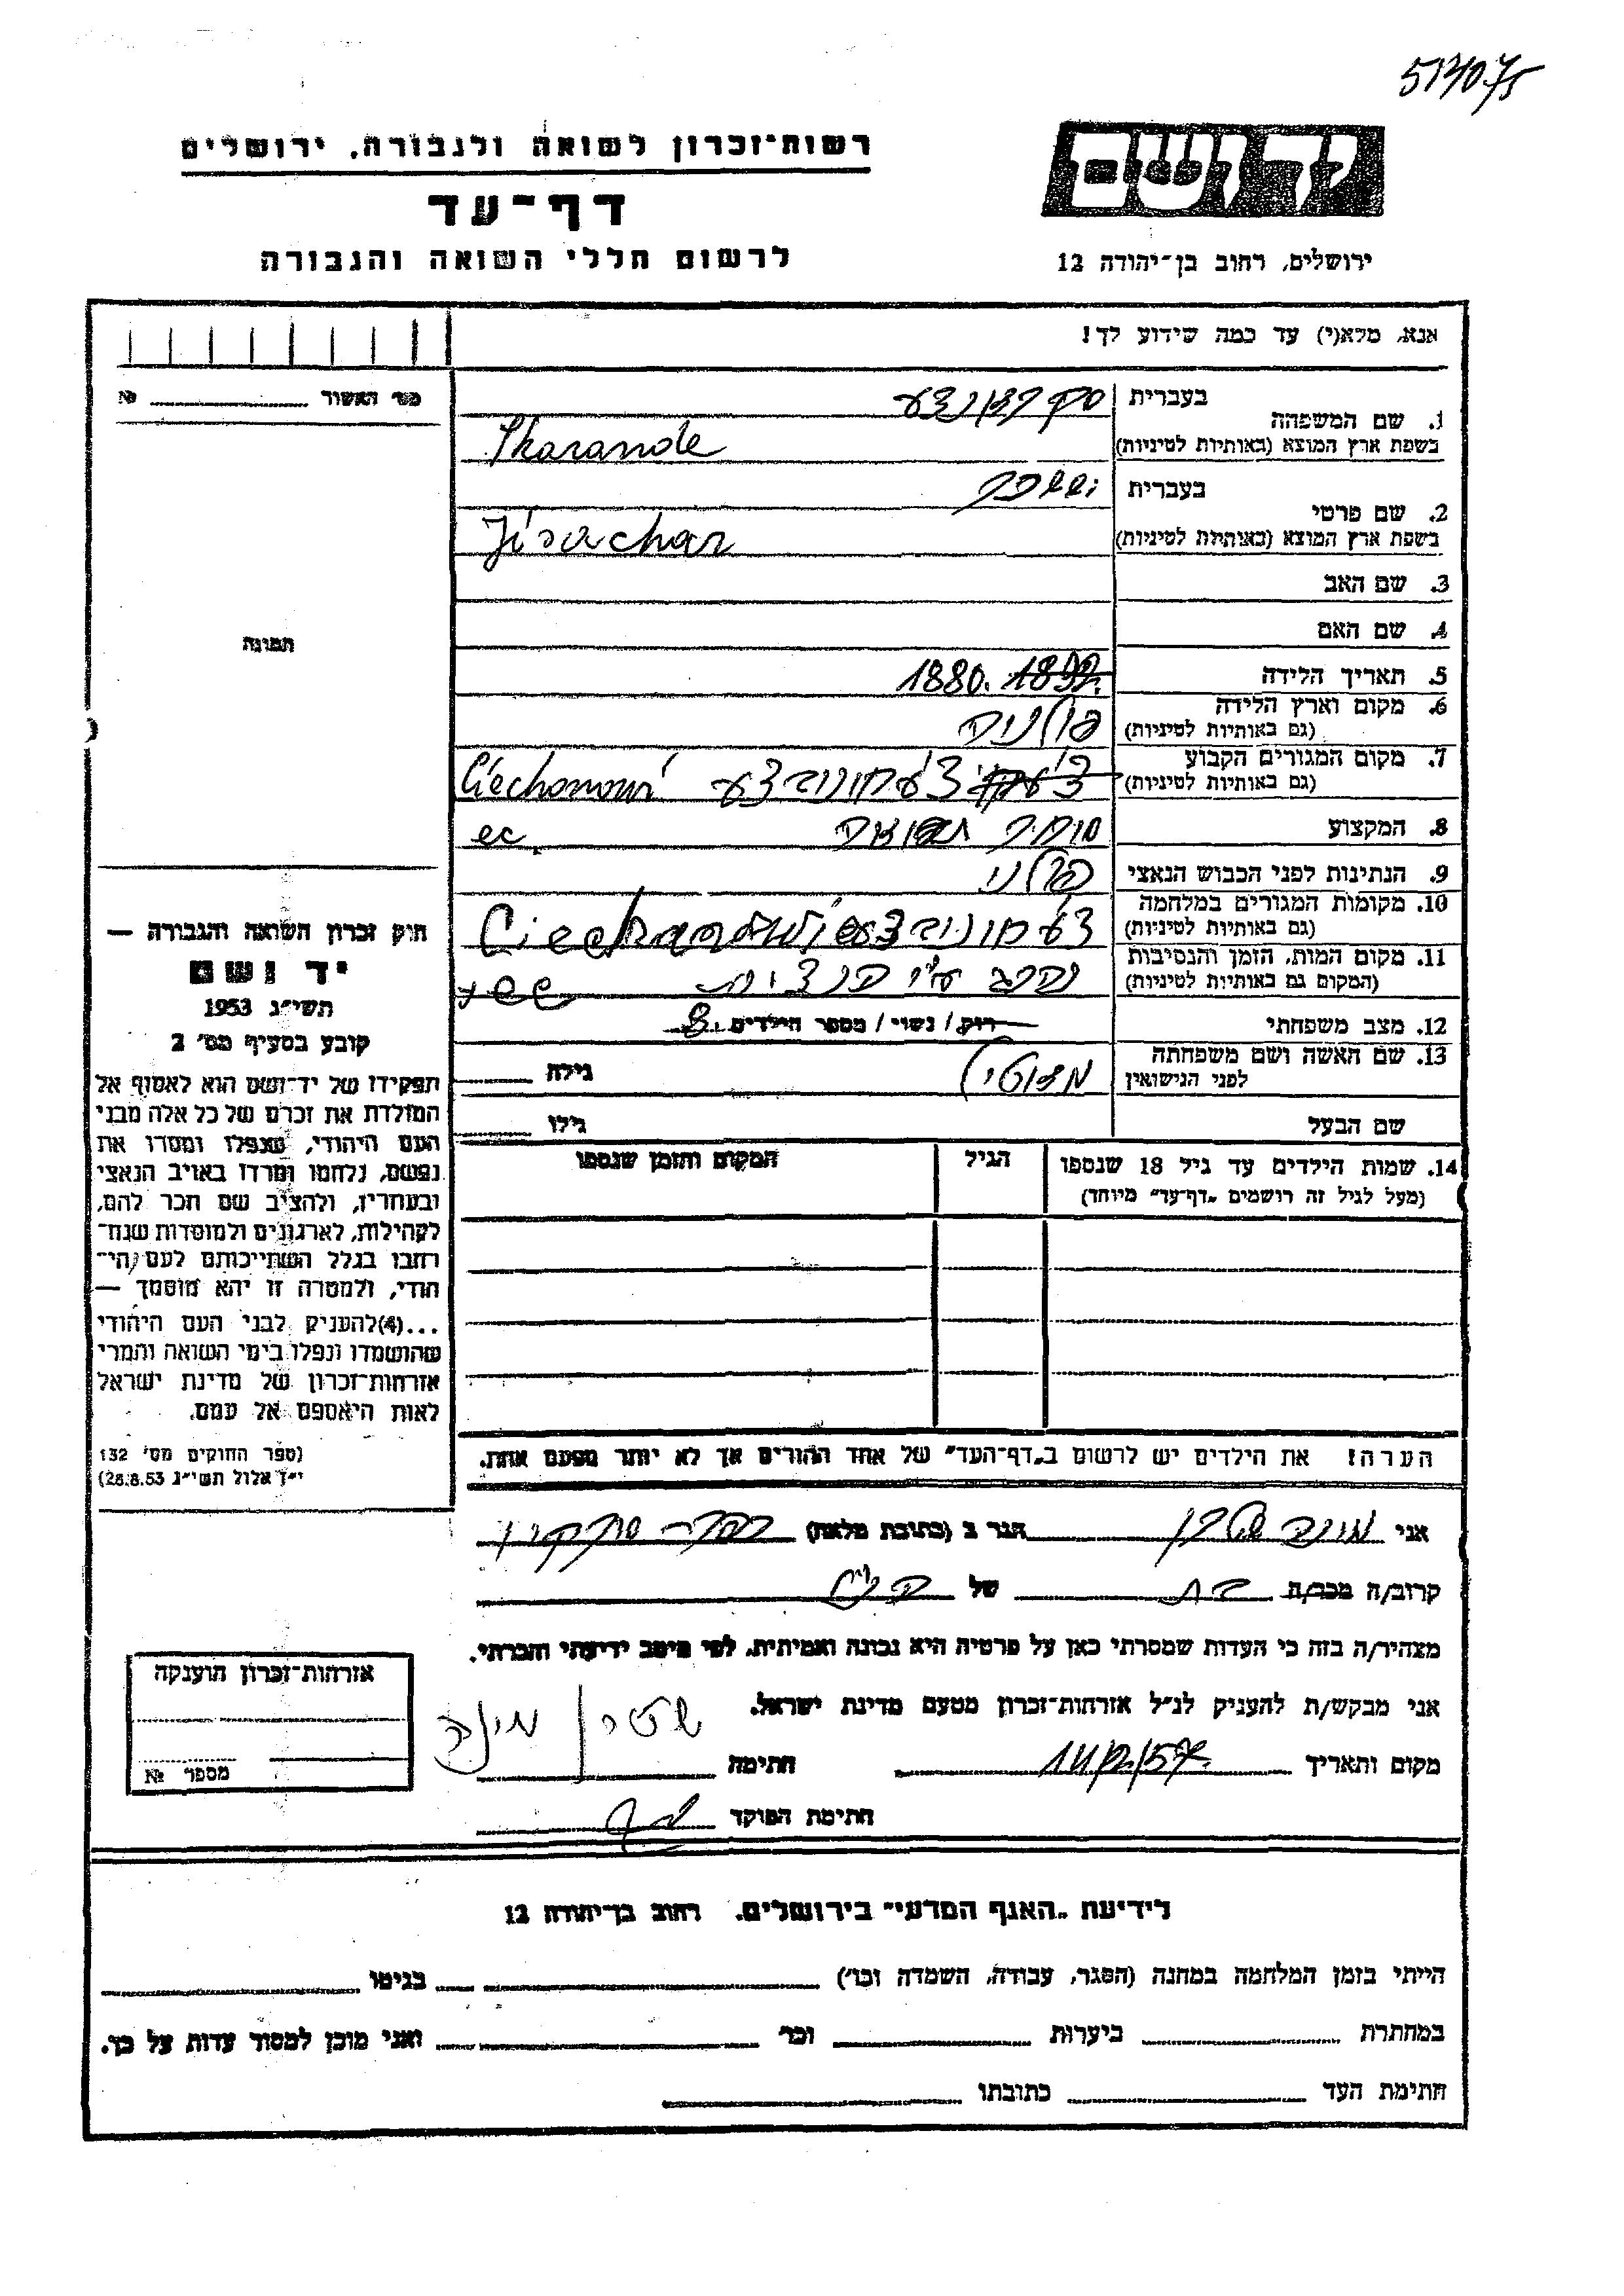 רשות־זכרון לשואה ולגבורה, ירושלים
דף־עד
לרשום חללי השואה והגבורה
יד ושם
ירושלים, רחוב בן־יהודה 12
אנא, מלא(י) עד כמה שידוע לך!
מס' האשור №
תמונה
1. שם המשפחה
בעברית
בשפת ארץ המוצא (באותיות לטיניות) Skarande
2. שם פרטי
בעברית יששכר
בשפת ארץ המוצא (באותיות לטיניות) Jisachar
3. שם האב
4. שם האם
5. תאריך הלידה 1880.
6. מקום וארץ הלידה
(גם באותיות לטיניות) פולניה
7. מקום המגורים הקבוע
(גם באותיות לטיניות) צ'עחנובצע Ciechanowi
8. המקצוע סוחר תבואה ec
9. הנתינות לפני הכבוש הנאצי פולני
10. מקומות המגורים במלחמה
(גם באותיות לטיניות)
11. מקום המות, הזמן והנסיבות
(המקום גם באותיות לטיניות) נהרג ע"י הנצים
12. מצב משפחתי רוק / נשוי / מספר הילדים 3.
13. שם האשה ושם משפחתה
לפני הנישואין גילה
שם הבעל גילו
14. שמות הילדים עד גיל 18 שנספו הגיל המקום והזמן שנספו
(מעל לגיל זה רושמים „דף־עד" מיוחד)
הערה! את הילדים יש לרשום ב„דף־העד" של אחד ההורים אך לא יותר מפעם אחת.
חוק זכרון השואה והגבורה —
יד ושם
תשי"ג 1953
קובע בסעיף מס' 2
תפקידו של יד־ושם הוא לאסוף אל
המולדת את זכרם של כל אלה מבני
העם היהודי, שנפלו ומסרו את
נפשם, נלחמו ומרדו באויב הנאצי
ובעוזריו, ולהציב שם וזכר להם,
לקהילות, לארגונים ולמוסדות שנח־
רבו בגלל השתייכותם לעם הי־
הודי, ולמטרה זו יהא מוסמך —
...(4)להעניק לבני העם היהודי
שהושמדו ונפלו בימי השואה והמרי
אזרחות־זכרון של מדינת ישראל
לאות היאספם אל עמם.
(ספר החוקים מס' 132
י"ז אלול תשי"ג 28.8.53)
אני מינה שטרן הגר ב (כתובת מלאה)
קרוב/ה מכר/ה בת של
מצהיר/ה בזה כי העדות שמסרתי כאן על פרטיה היא נכונה ואמיתית, לפי מיטב ידיעתי והכרתי.
אני מבקש/ת להעניק לנ"ל אזרחות־זכרון מטעם מדינת ישראל.
מקום ותאריך חתימה שטרן מינה
חתימת הפוקד
אזרחות־זכרון הוענקה
מספר №
לידיעת „האגף המדעי" בירושלים, רחוב בן־יהודה 12
הייתי בזמן המלחמה במחנה (הסגר, עבודה, השמדה וכו') בגיטו
במחתרת ביערות וכו' ואני מוכן למסור עדות על כך.
חתימת העד כתובתו